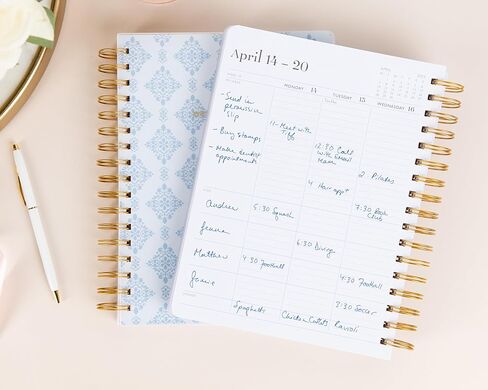 April 14 – 20
MONDAY 14
TUESDAY 15
WEDNESDAY 16
- Send in
permission
slip
- Buy stamps
- Make dentist
appointments
11 - Meet with
12:30 Call
with
4 Hair appt
2 Pilates
Andrew
5:30 Squash
7:30 Book
Club
Jenna
6:30 Diving
Matthew
4:30 Football
4:30 Football
Jamie
3:30 Soccer
Spaghetti
Chicken Cutlets
Ravioli